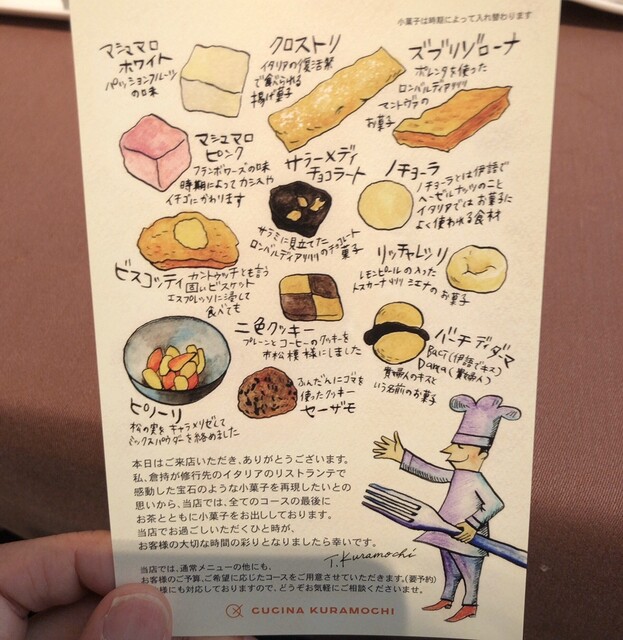 小菓子は時期によって入れ替わります
マシュマロ
ホワイト
パッションフルーツ
の味
クロストリ
イタリアの復活祭
で食べられる
揚げ菓子
ズブリゾローナ
ポレンタを使った
ロンバルディア州
マントヴァの
お菓子
マシュマロ
ピンク
フランボワーズの味
時期によってカシスや
イチゴにかわります
サラーメディ
チョコラート
サラミに見立てた
ロンバルディア州のチョコレート
菓子
ノチョーラ
ノチョーラとは伊語で
ヘーゼルナッツのこと
イタリアではお菓子に
よく使われる食材
ビスコッティ
カントゥッチとも言う
固いビスケット
エスプレッソに浸して
食べても
リッチャレッリ
レモンピールの入った
トスカーナ州シエナのお菓子
二色クッキー
プレーンとコーヒーのクッキーを
市松模様にしました
バーチディダーマ
Baci(伊語でキス)
Dama(貴婦人)
貴婦人のキスと
いう名前のお菓子
ピノーリ
松の実をキャラメリゼして
ミックスパウダーを絡めました
ふんだんにゴマを
使ったクッキー
セーザモ
本日はご来店いただき、ありがとうございます。
私、倉持が修行先のイタリアのリストランテで
感動した宝石のような小菓子を再現したいとの
思いから、当店では、全てのコースの最後に
お茶とともに小菓子をお出ししております。
当店でお過ごしいただくひと時が、
お客様の大切な時間の彩りとなりましたら幸いです。
T. Kuramochi
当店では、通常メニューの他にも、
お客様のご予算、ご希望に応じたコースをご用意させていただきます。(要予約)
様にも対応しておりますので、どうぞお気軽にご相談くださいませ。
CUCINA KURAMOCHI